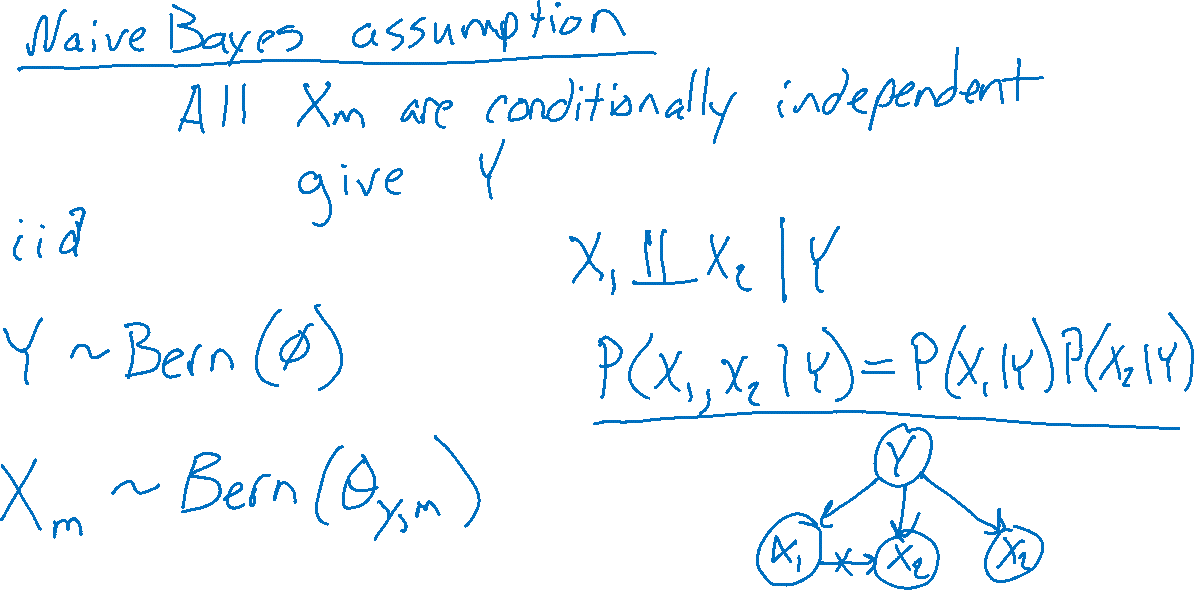 Naive Bayes assumption
All Xₘ are conditionally independent
give Y
iid
X₁ ⫫ X₂ | Y
Y ~ Bern(ø)
P(X₁, X₂ | Y) = P(X₁|Y) P(X₂|Y)
Xₘ ~ Bern(θ_y,m)
Y
X₁ X₂ X₂